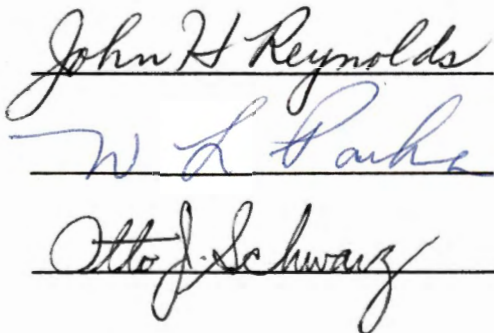 John H Reynolds
W L Parks
Otto J. Schwarz